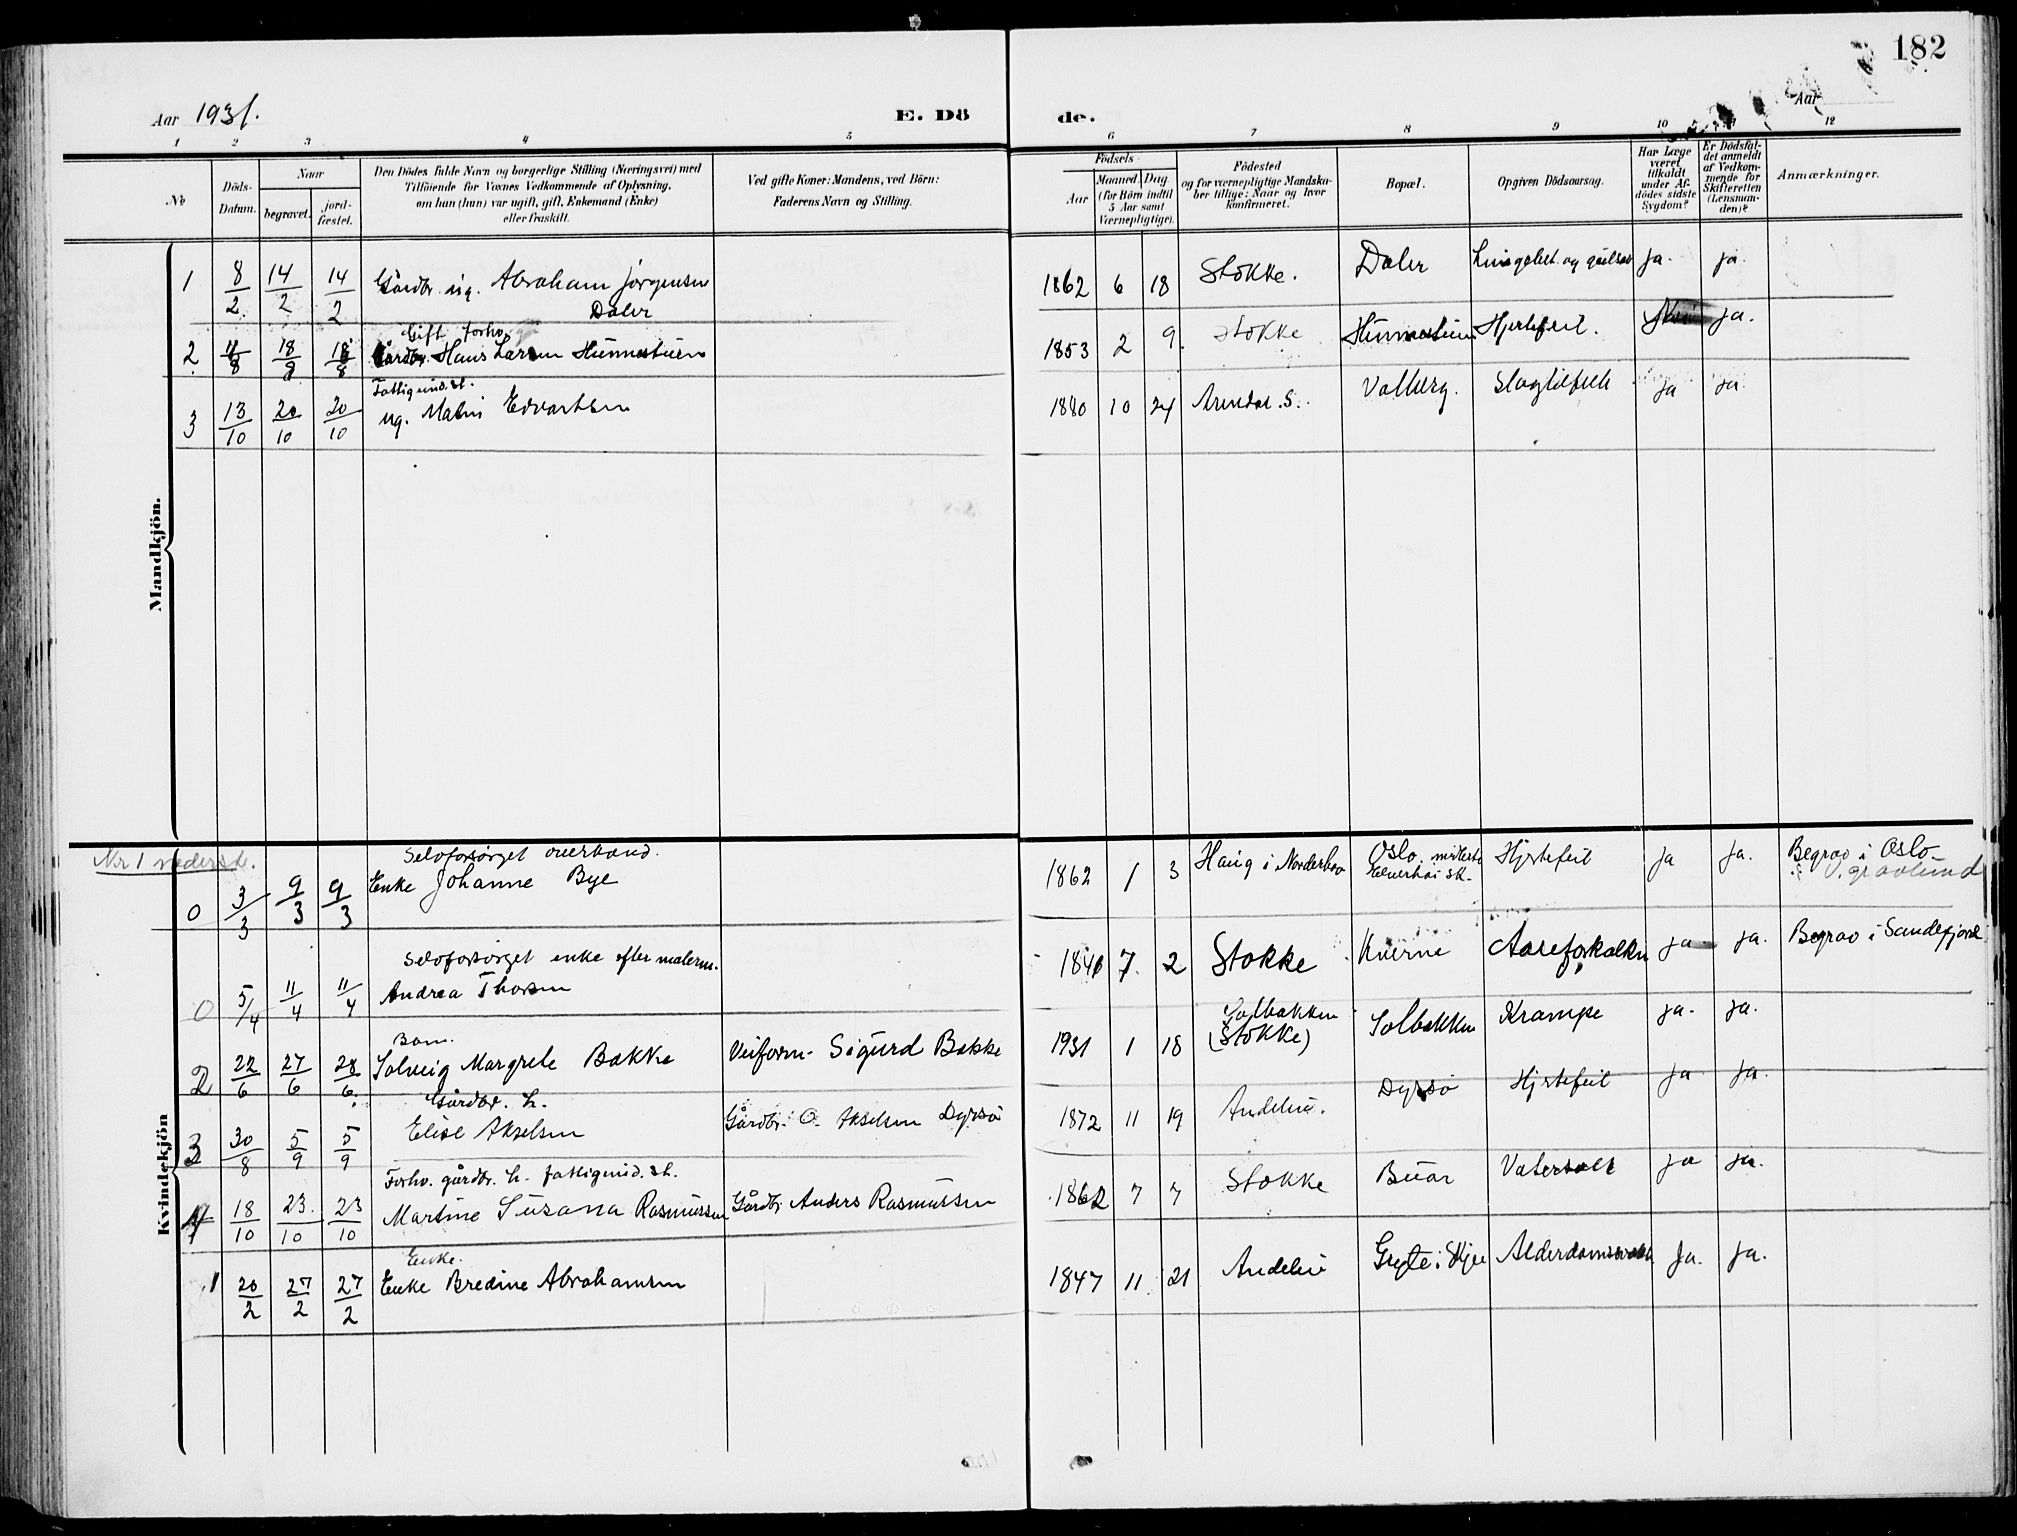 182
Aar 1931.
E. Dö
de.
Aar
1 2 3 4 5 6 7 8 9 10 11 12
No
Döds-Datum.
Naar
begravet.
jord-fæstet.
Den Dödes fulde Navn og borgerlige Stilling (Næringsvei) med
Tilföiende for Voxnes Vedkommende af Oplysning,
om han (hun) var ugift, gift, Enkemand (Enke)
eller fraskilt.
Ved gifte Koner: Mandens, ved Börn:
Faderens Navn og Stilling.
Födsels-
Aar
Maaned. Dag
(for Börn indtil
5 Aar samt
Værnepligtige).
Födested
og for værnepligtige Mandska-
ber tillige: Naar og hvor
konfirmeret.
Bopæl.
Opgiven Dödsaarsag.
Har Læge
været
tilkaldt
under Af-
dödes sidste
Sygdom?
Er Dödsfal-
det anmeldt
af Vedkom-
mende for
Skifteretten
(Lensman-
den)?
Anmærkninger.
Mandkjön.
1 8/2 14/2 14/2 Gårdbr. ug. Abraham Jörgensen 1862 6 18 Stokke. Daler og ja. ja.
Daler
Gift forhv.
2 11/8 18/8 18/8 Gårdbr. Hans Larsen Hunnestuen 1853 2 9. Stokke Hunnestuen Hjertefeil. ja.
Fattigund.st.
3 13/10 20/10 20/10 ug. Edvartsen 1880 10 24 Arendal. S. Valberg. Slagtilfelle ja ja
Kvindekjön
Nr 1 nederst.
Selvforsørget
0 3/3 9/3 9/3 Enke Johanne Bye 1862 1 3 Haug i Norderhov Oslo. Hjertefeil ja ja. Begrav i Oslo
gravlund
Selvforsørget enke efter malerm.
0 5/4 11/4 11/4 Andrea Thorsen 1840 7. 2 Stokke Kverne Aareforkalkn ja ja. Begrav i Sandefjord
Barn.
2 22/6 27/6 28/6 Solveig Margrete Bakke Veiform. Sigurd Bakke 1931 1 18 Solbakken (Stokke) Solbakken Krampe ja. ja.
Gårdbr. h.
3 30/8 5/9 5/9 Elise Akselsen Gårdbr. O. Akselsen Dyrsö 1872 11 19 Andebu. Dyrsö Hjertefeil ja ja.
Forhv. gårdbr. h. fattigund. st.
4 18/10 23/10 23/10 Martine Susana Rasmussen Gårdbr. Anders Rasmussen 1862 7 7 Stokke Buar Vatersott ja ja.
Enke.
1 20/2 27/2 27/2 Enke Bredine Abrahamsen 1847 11 21 Andebu Gryte i Skjee Alderdomssvakh Ja. ja.